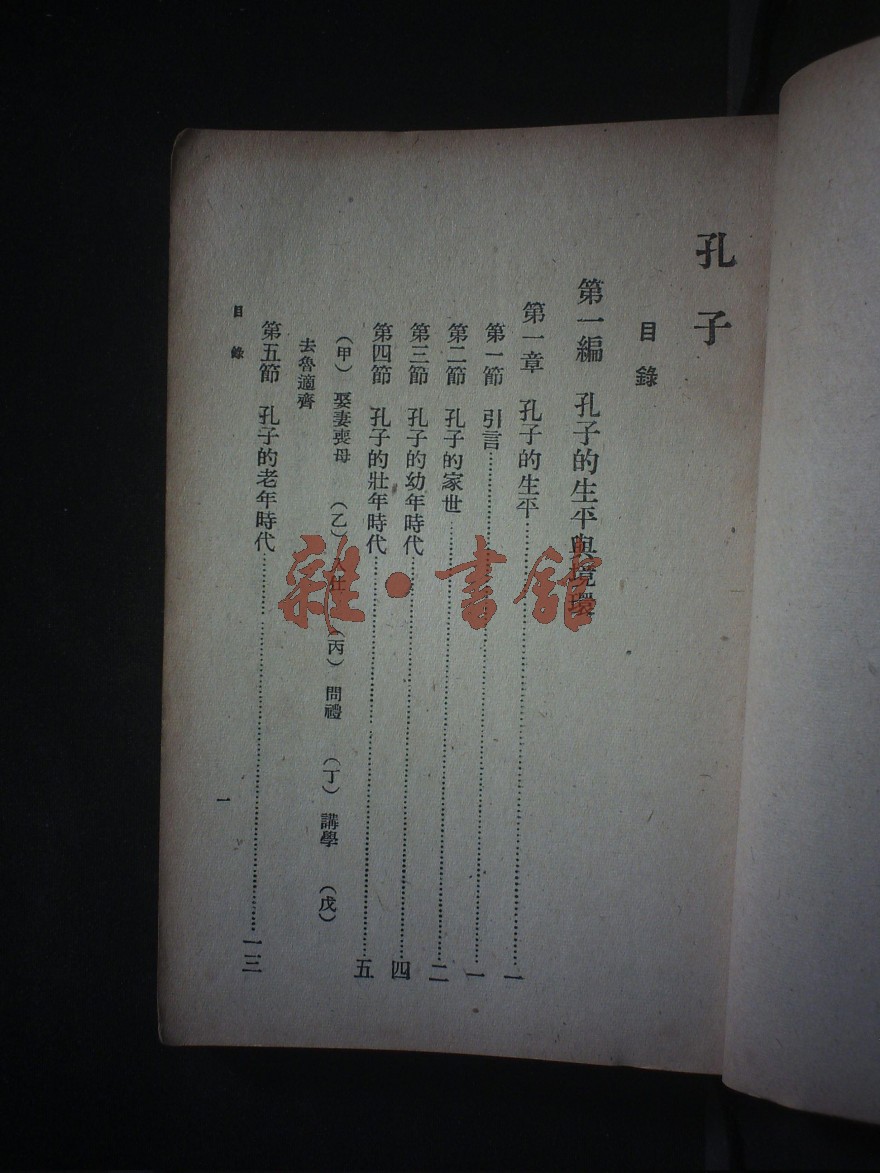 孔子
目錄
第一編 孔子的生平與境環
第一章 孔子的生平 一
第一節 引言 一
第二節 孔子的家世 二
第三節 孔子的幼年時代 四
第四節 孔子的壯年時代 五
(甲) 娶妻喪母 (乙) 入仕 (丙) 問禮 (丁) 講學 (戊)
去魯適齊
第五節 孔子的老年時代 一三
目錄
一
雜·書館